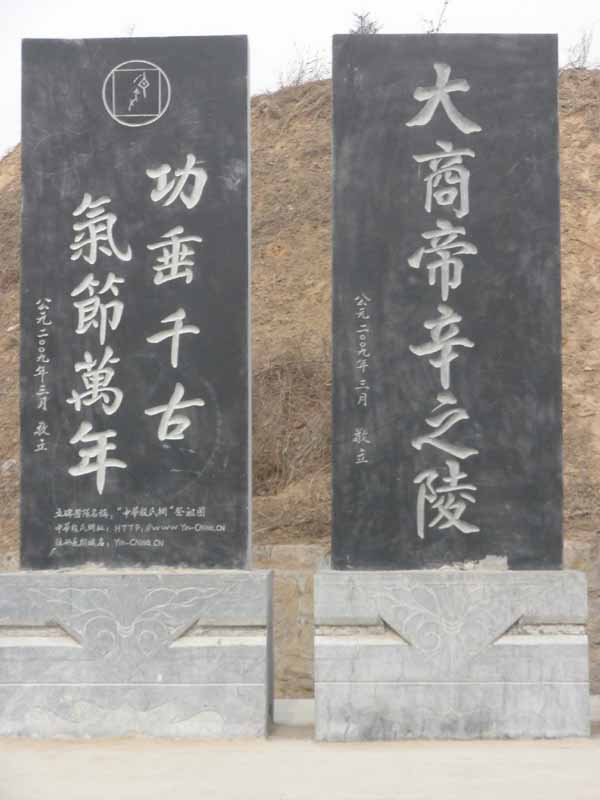 大商帝辛之陵
公元二〇〇九年三月 敬立
功垂千古
氣節萬年
公元二〇〇九年三月 敬立
立碑團隊名稱："中華殷氏網"祭祖團
中華殷氏網址：HTTP://WWW.YIN-CHINA.CN
域名：YIN-CHINA.CN